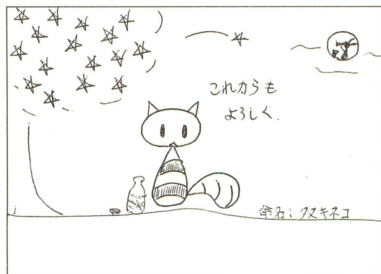 これからも
よろしく.
命名: タヌキネコ